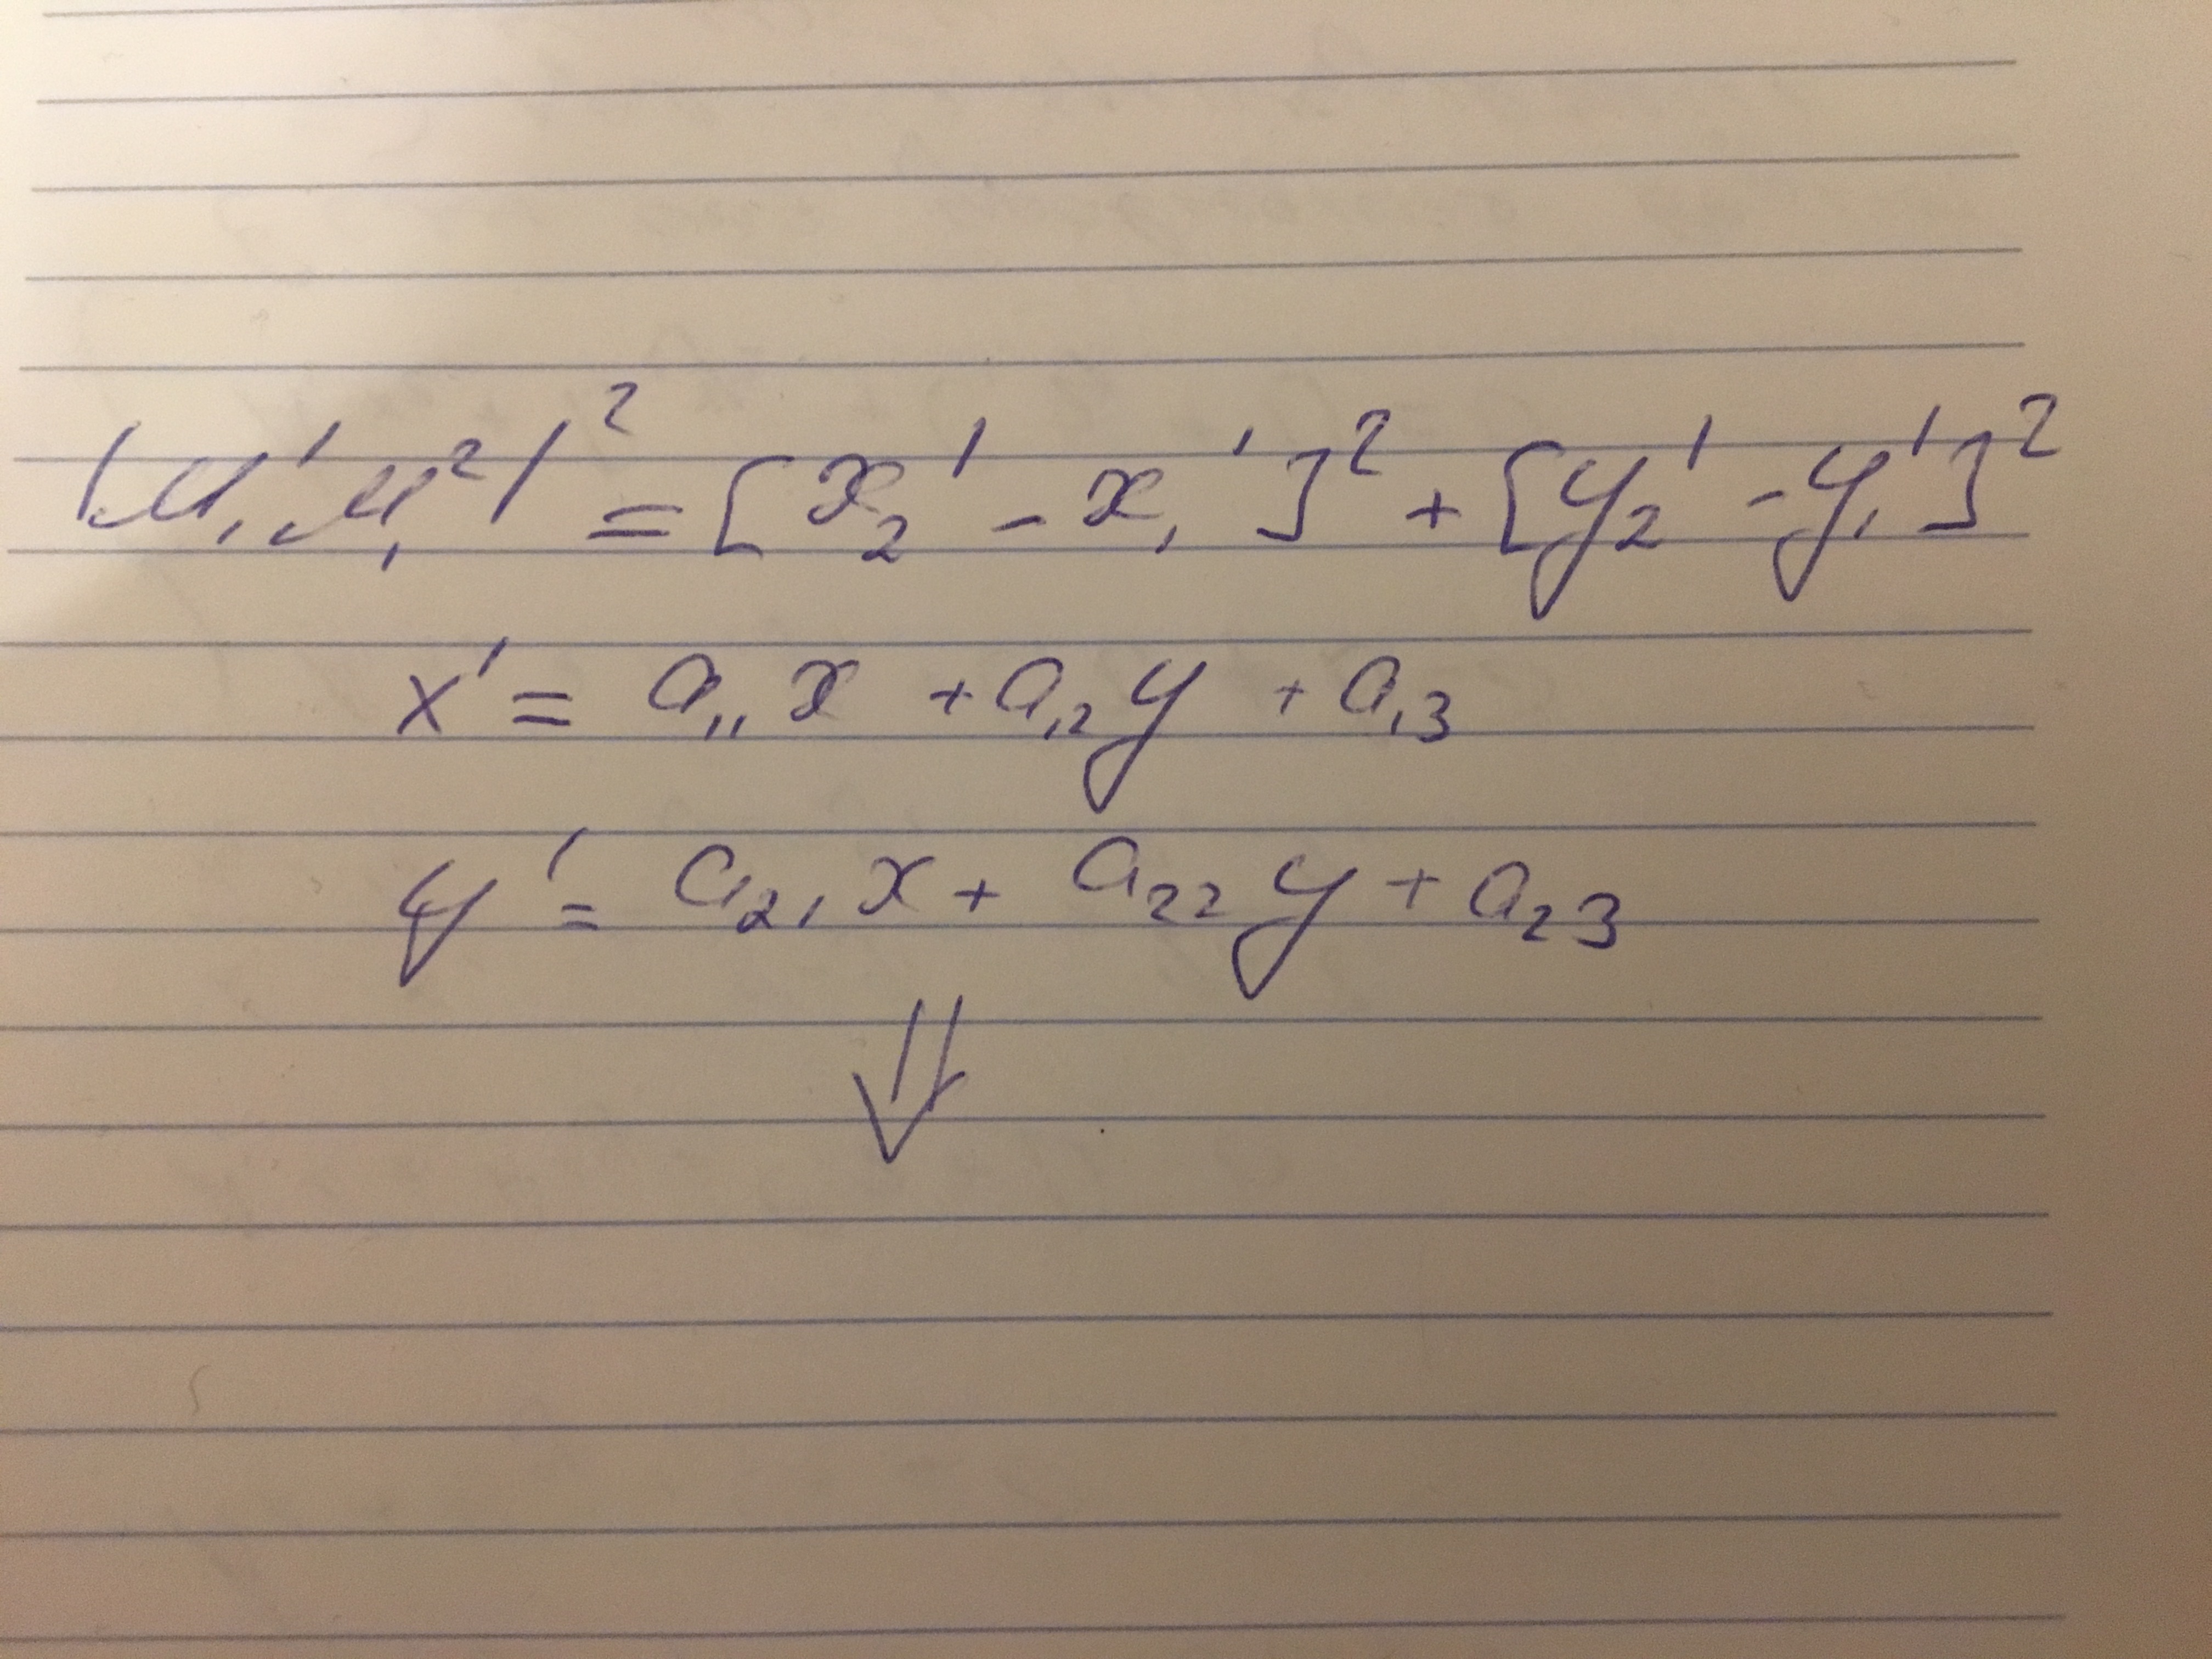 |M₁'M₁²|² = [x₂' - x₁']² + [y₂' - y₁']²
x' = a₁₁x + a₁₂y + a₁₃
y' = a₂₁x + a₂₂y + a₂₃
⇓